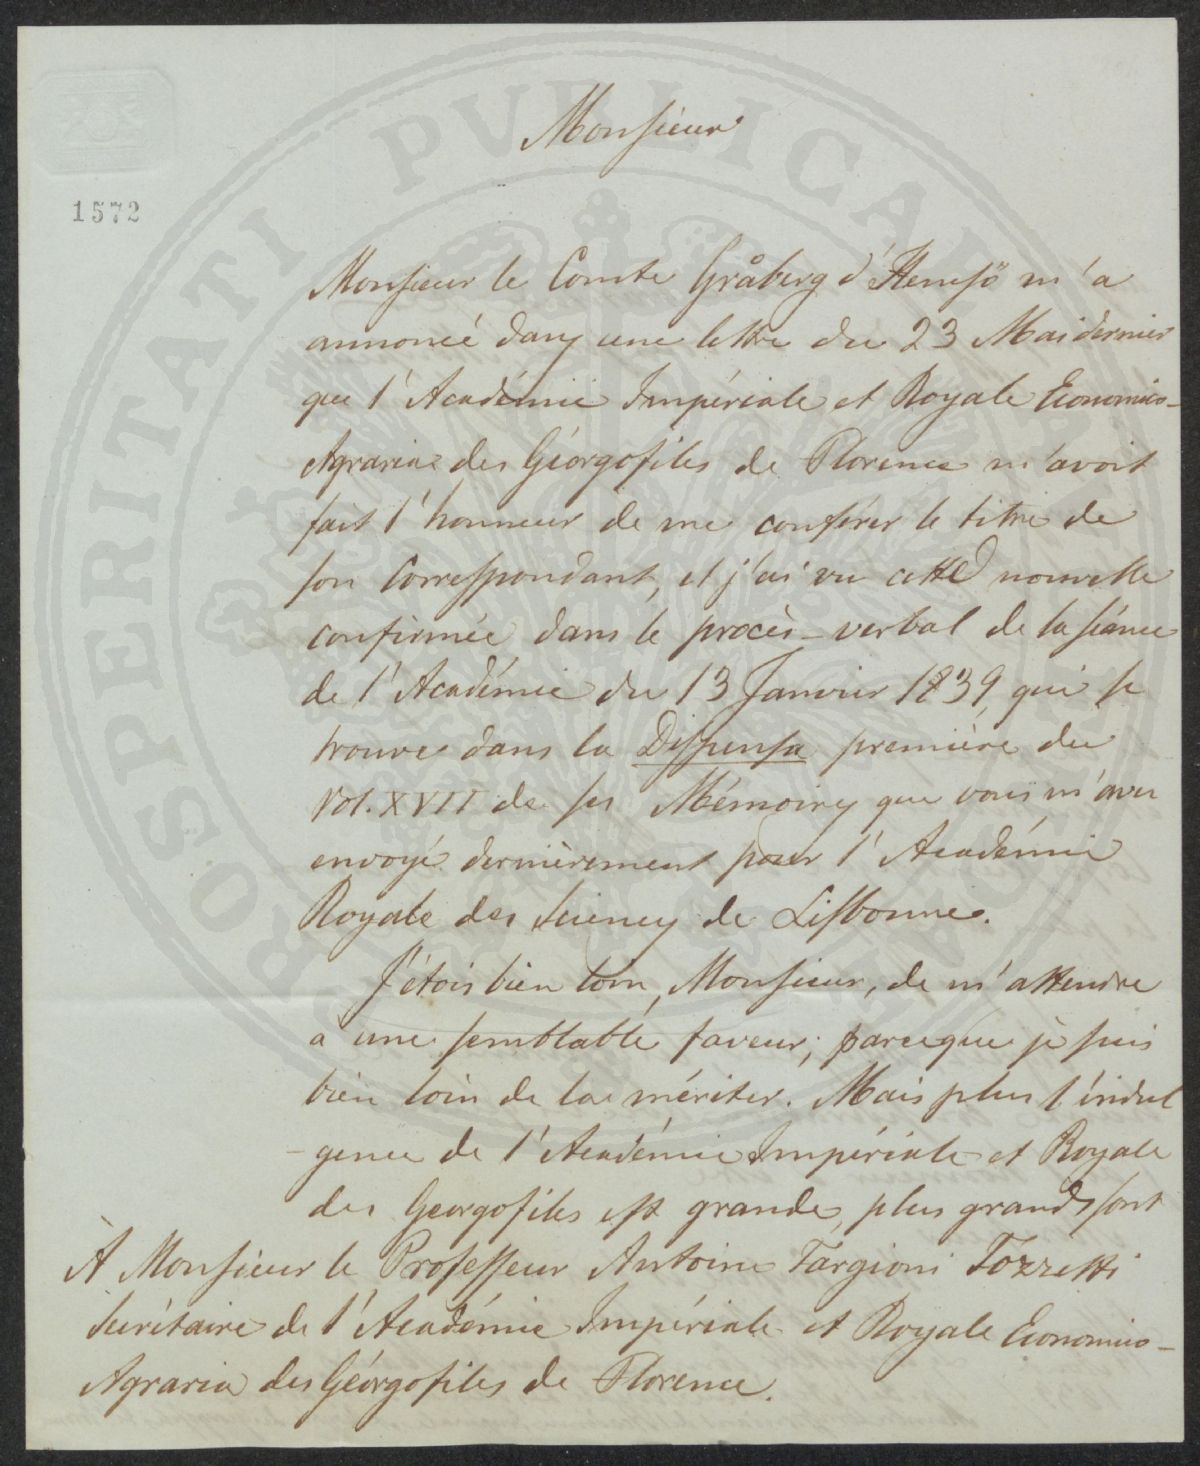 PROSPERITATI PUBLICAE AUGENDAE
Monsieur
1572
Monsieur le Comte Gråberg d'Hemsö m'a
annoncé dans une lettre du 23 Mai dernier
que l'Académie Impériale et Royale Economico-
Agraria des Géorgofiles de Florence m'avoit
fait l'honneur de me conférer le titre de
son Correspondant, et j'ai vu cette nouvelle
confirmée dans le procès-verbal de la séance
de l'Académie du 13 Janvier 1839, qui se
trouve dans la Dispensa première du
Vol. XVII de ses Mémoires que vous m'avez
envoyé dernièrement pour l'Académie
Royale des Sciences de Lisbonne.
J'étois bien loin, Monsieur, de m'attendre
a une semblable faveur; parceque je suis
bien loin de la mériter. Mais plus l'indul
-gence de l'Académie Impériale et Royale
des Georgofiles est grande, plus grands sont
À Monsieur le Professeur Antoine Targioni Tozzetti
Secrétaire de l'Académie Impériale et Royale Economico-
Agraria des Géorgofiles de Florence.